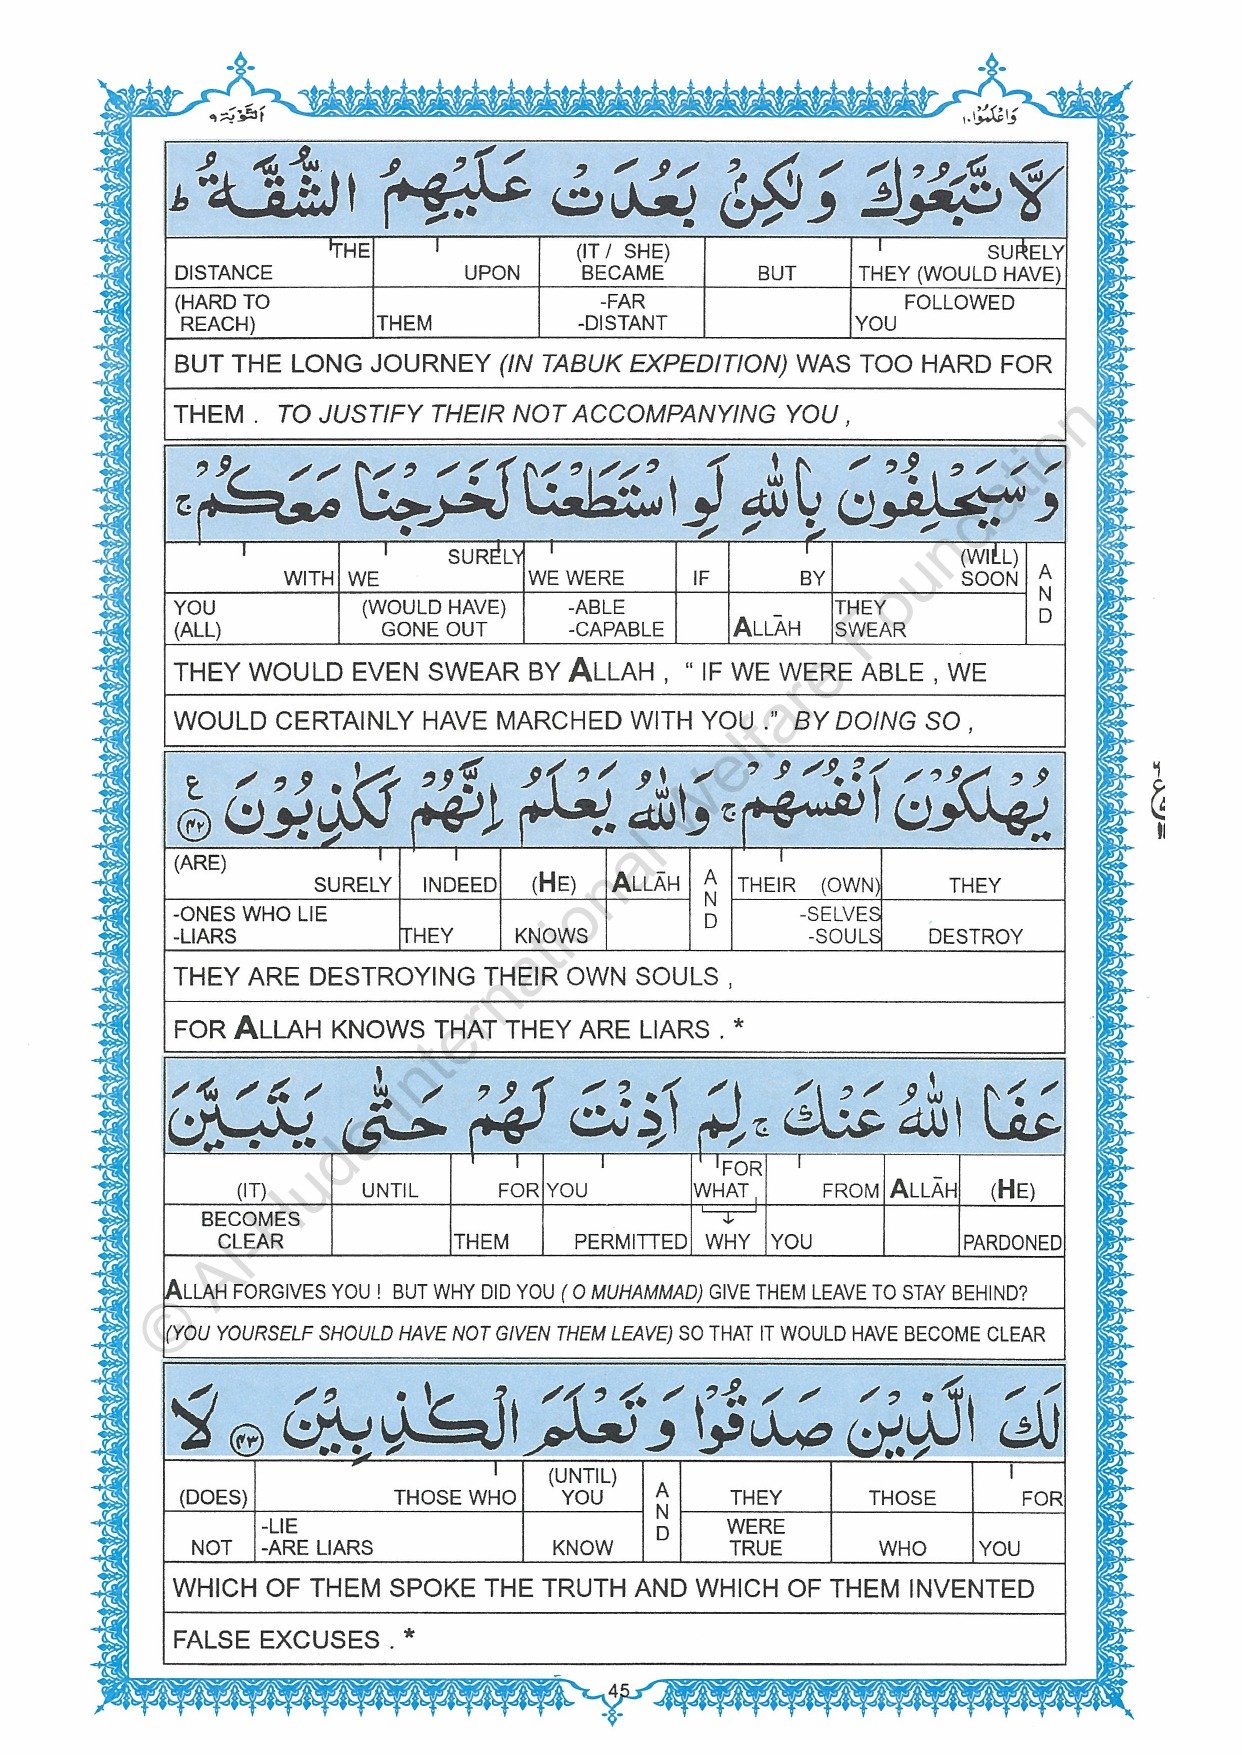 وَاعْلَمُوْٓا ١٠ اَلتَّوْبَة ٩
لَّا تَّبَعُوْكَ وَلٰكِنْۢ بَعُدَتْ عَلَيْهِمُ الشُّقَّةُ ؕ
THE SURELY
DISTANCE UPON (IT / SHE) BECAME BUT THEY (WOULD HAVE)
(HARD TO REACH) THEM -FAR -DISTANT FOLLOWED YOU
BUT THE LONG JOURNEY (IN TABUK EXPEDITION) WAS TOO HARD FOR
THEM . TO JUSTIFY THEIR NOT ACCOMPANYING YOU ,
وَسَيَحْلِفُوْنَ بِاللّٰهِ لَوِ اسْتَطَعْنَا لَخَرَجْنَا مَعَكُمْ ۚ
SURELY (WILL)
WITH WE WE WERE IF BY SOON AND
YOU (ALL) (WOULD HAVE) GONE OUT -ABLE -CAPABLE ALLĀH THEY SWEAR
THEY WOULD EVEN SWEAR BY ALLAH , “ IF WE WERE ABLE , WE
WOULD CERTAINLY HAVE MARCHED WITH YOU .” BY DOING SO ,
يُهْلِكُوْنَ اَنْفُسَهُمْ ۚ وَاللّٰهُ يَعْلَمُ اِنَّهُمْ لَكٰذِبُوْنَ ٤٢ ع
(ARE)
SURELY INDEED (HE) ALLĀH AND THEIR (OWN) THEY
-ONES WHO LIE -LIARS THEY KNOWS -SELVES -SOULS DESTROY
THEY ARE DESTROYING THEIR OWN SOULS ,
FOR ALLAH KNOWS THAT THEY ARE LIARS . *
عَفَا اللّٰهُ عَنْكَ ۚ لِمَ اَذِنْتَ لَهُمْ حَتّٰى يَتَبَيَّنَ
FOR
(IT) UNTIL FOR YOU WHAT FROM ALLĀH (HE)
BECOMES CLEAR THEM PERMITTED WHY YOU PARDONED
ALLAH FORGIVES YOU ! BUT WHY DID YOU ( O MUHAMMAD) GIVE THEM LEAVE TO STAY BEHIND?
(YOU YOURSELF SHOULD HAVE NOT GIVEN THEM LEAVE) SO THAT IT WOULD HAVE BECOME CLEAR
لَكَ الَّذِيْنَ صَدَقُوْا وَتَعْلَمَ الْكٰذِبِيْنَ ٤٣ لَا
(UNTIL)
(DOES) THOSE WHO YOU AND THEY THOSE FOR
NOT -LIE -ARE LIARS KNOW WERE TRUE WHO YOU
WHICH OF THEM SPOKE THE TRUTH AND WHICH OF THEM INVENTED
FALSE EXCUSES . *
45
© Al-Huda International Welfare Foundation